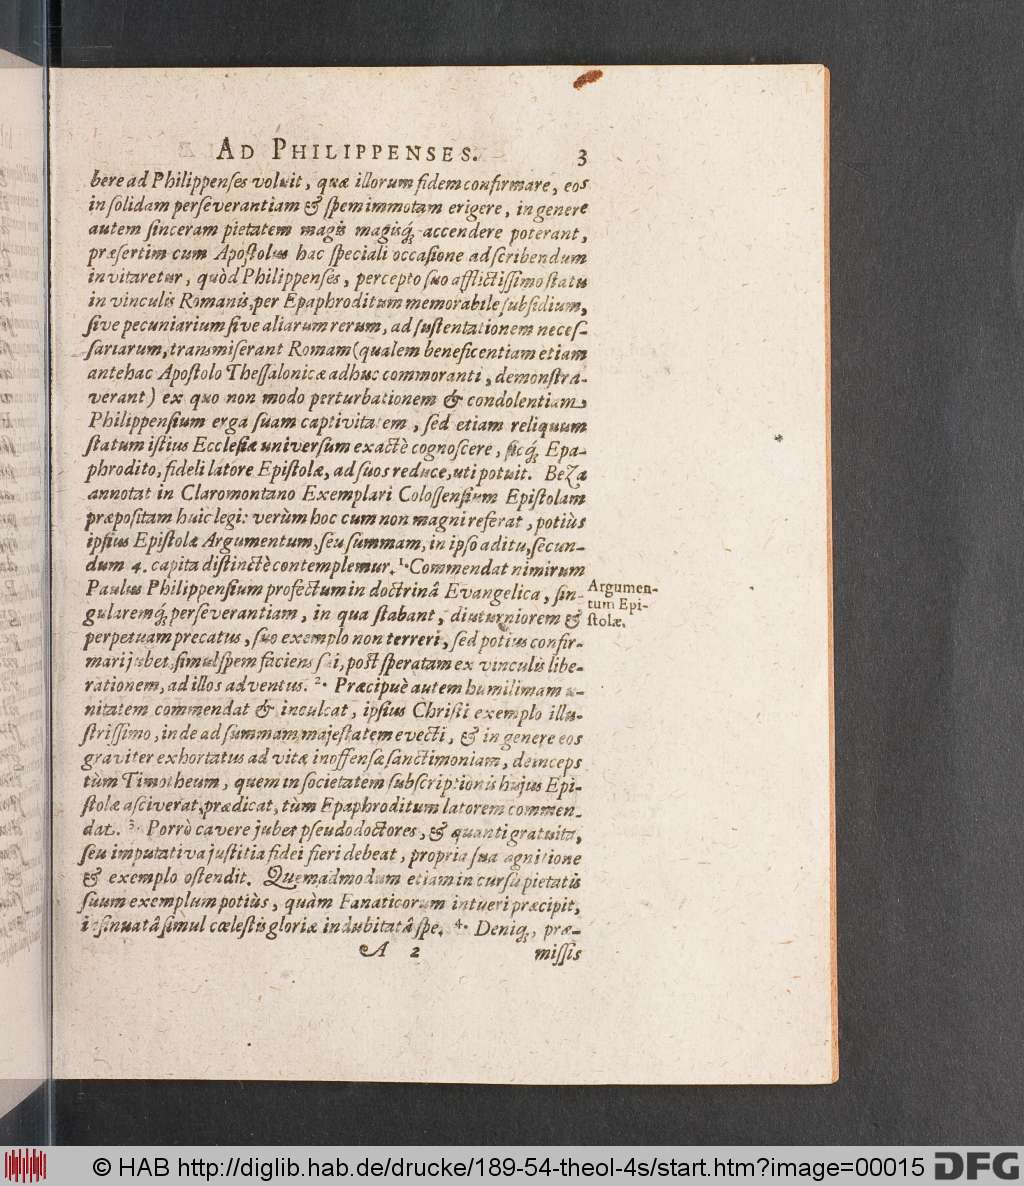 AD PHILIPPENSES. 3
bere ad Philippenses voluit, quæ illorum fidem confirmare, eos
in solidam perseverantiam & spem immotam erigere, in genere
autem sinceram pietatem magis magisq́; accendere poterant,
præsertim cum Apostolus hac speciali occasione ad scribendum
invitaretur, quòd Philippenses, percepto suo afflictissimo statu
in vinculis Romanis, per Epaphroditum memorabile subsidium,
sive pecuniarium sive aliarum rerum, ad sustentationem neces-
sariarum, transmiserant Romam (qualem beneficentiam etiam
antehac Apostolo Thessalonicæ adhuc commoranti, demonstra-
verant) ex quo non modo perturbationem & condolentiam
Philippensium erga suam captivitatem, sed etiam reliquum
statum istius Ecclesiæ universum exactè cognoscere, sicq́; Epa-
phrodito, fideli latore Epistolæ, ad suos reduce, uti potuit. Beza
annotat in Claromontano Exemplari Colossensium Epistolam
præpositam huic legi: verùm hoc cum non magni referat, potiùs
ipsius Epistolæ Argumentum, seu summam, in ipso aditu, secun-
dum 4. capita distinctè contemplemur. 1. Commendat nimirum
Paulus Philippensium profectum in doctrinâ Evangelica, sin-
gularemq́; perseverantiam, in qua stabant, diuturniorem &
perpetuam precatus, suo exemplo non terreri, sed potius confir-
mari jubet, simul spem faciens sui, post speratam ex vinculis libe-
rationem, ad illos adventus. 2. Præcipuè autem humilimam u-
nitatem commendat & inculcat, ipsius Christi exemplo illu-
strissimo, inde ad summam majestatem evecti, & in genere eos
graviter exhortatus ad vitæ inoffensæ sanctimoniam, deinceps
tùm Timotheum, quem in societatem subscriptionis hujus Epi-
stolæ asciverat, prædicat, tùm Epaphroditum latorem commen-
dat. 3. Porrò cavere jubet pseudodoctores, & quanti gratuita,
seu imputativa justitia fidei fieri debeat, propria sua agnitione
& exemplo ostendit. Quemadmodum etiam in cursu pietatis
suum exemplum potiùs, quàm Fanaticorum intueri præcipit,
insinuatâ simul cœlestis gloriæ indubitatâ spe. 4. Deniq;, præ-
A 2 missis
Argumen-
tum Epi-
stolæ.
© HAB http://diglib.hab.de/drucke/189-54-theol-4s/start.htm?image=00015 DFG